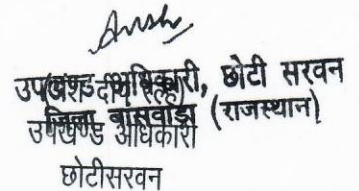 उपखण्ड अधिकारी, छोटी सरवन
जिला बांसवाड़ा (राजस्थान)
उपखण्ड अधिकारी
छोटीसरवन